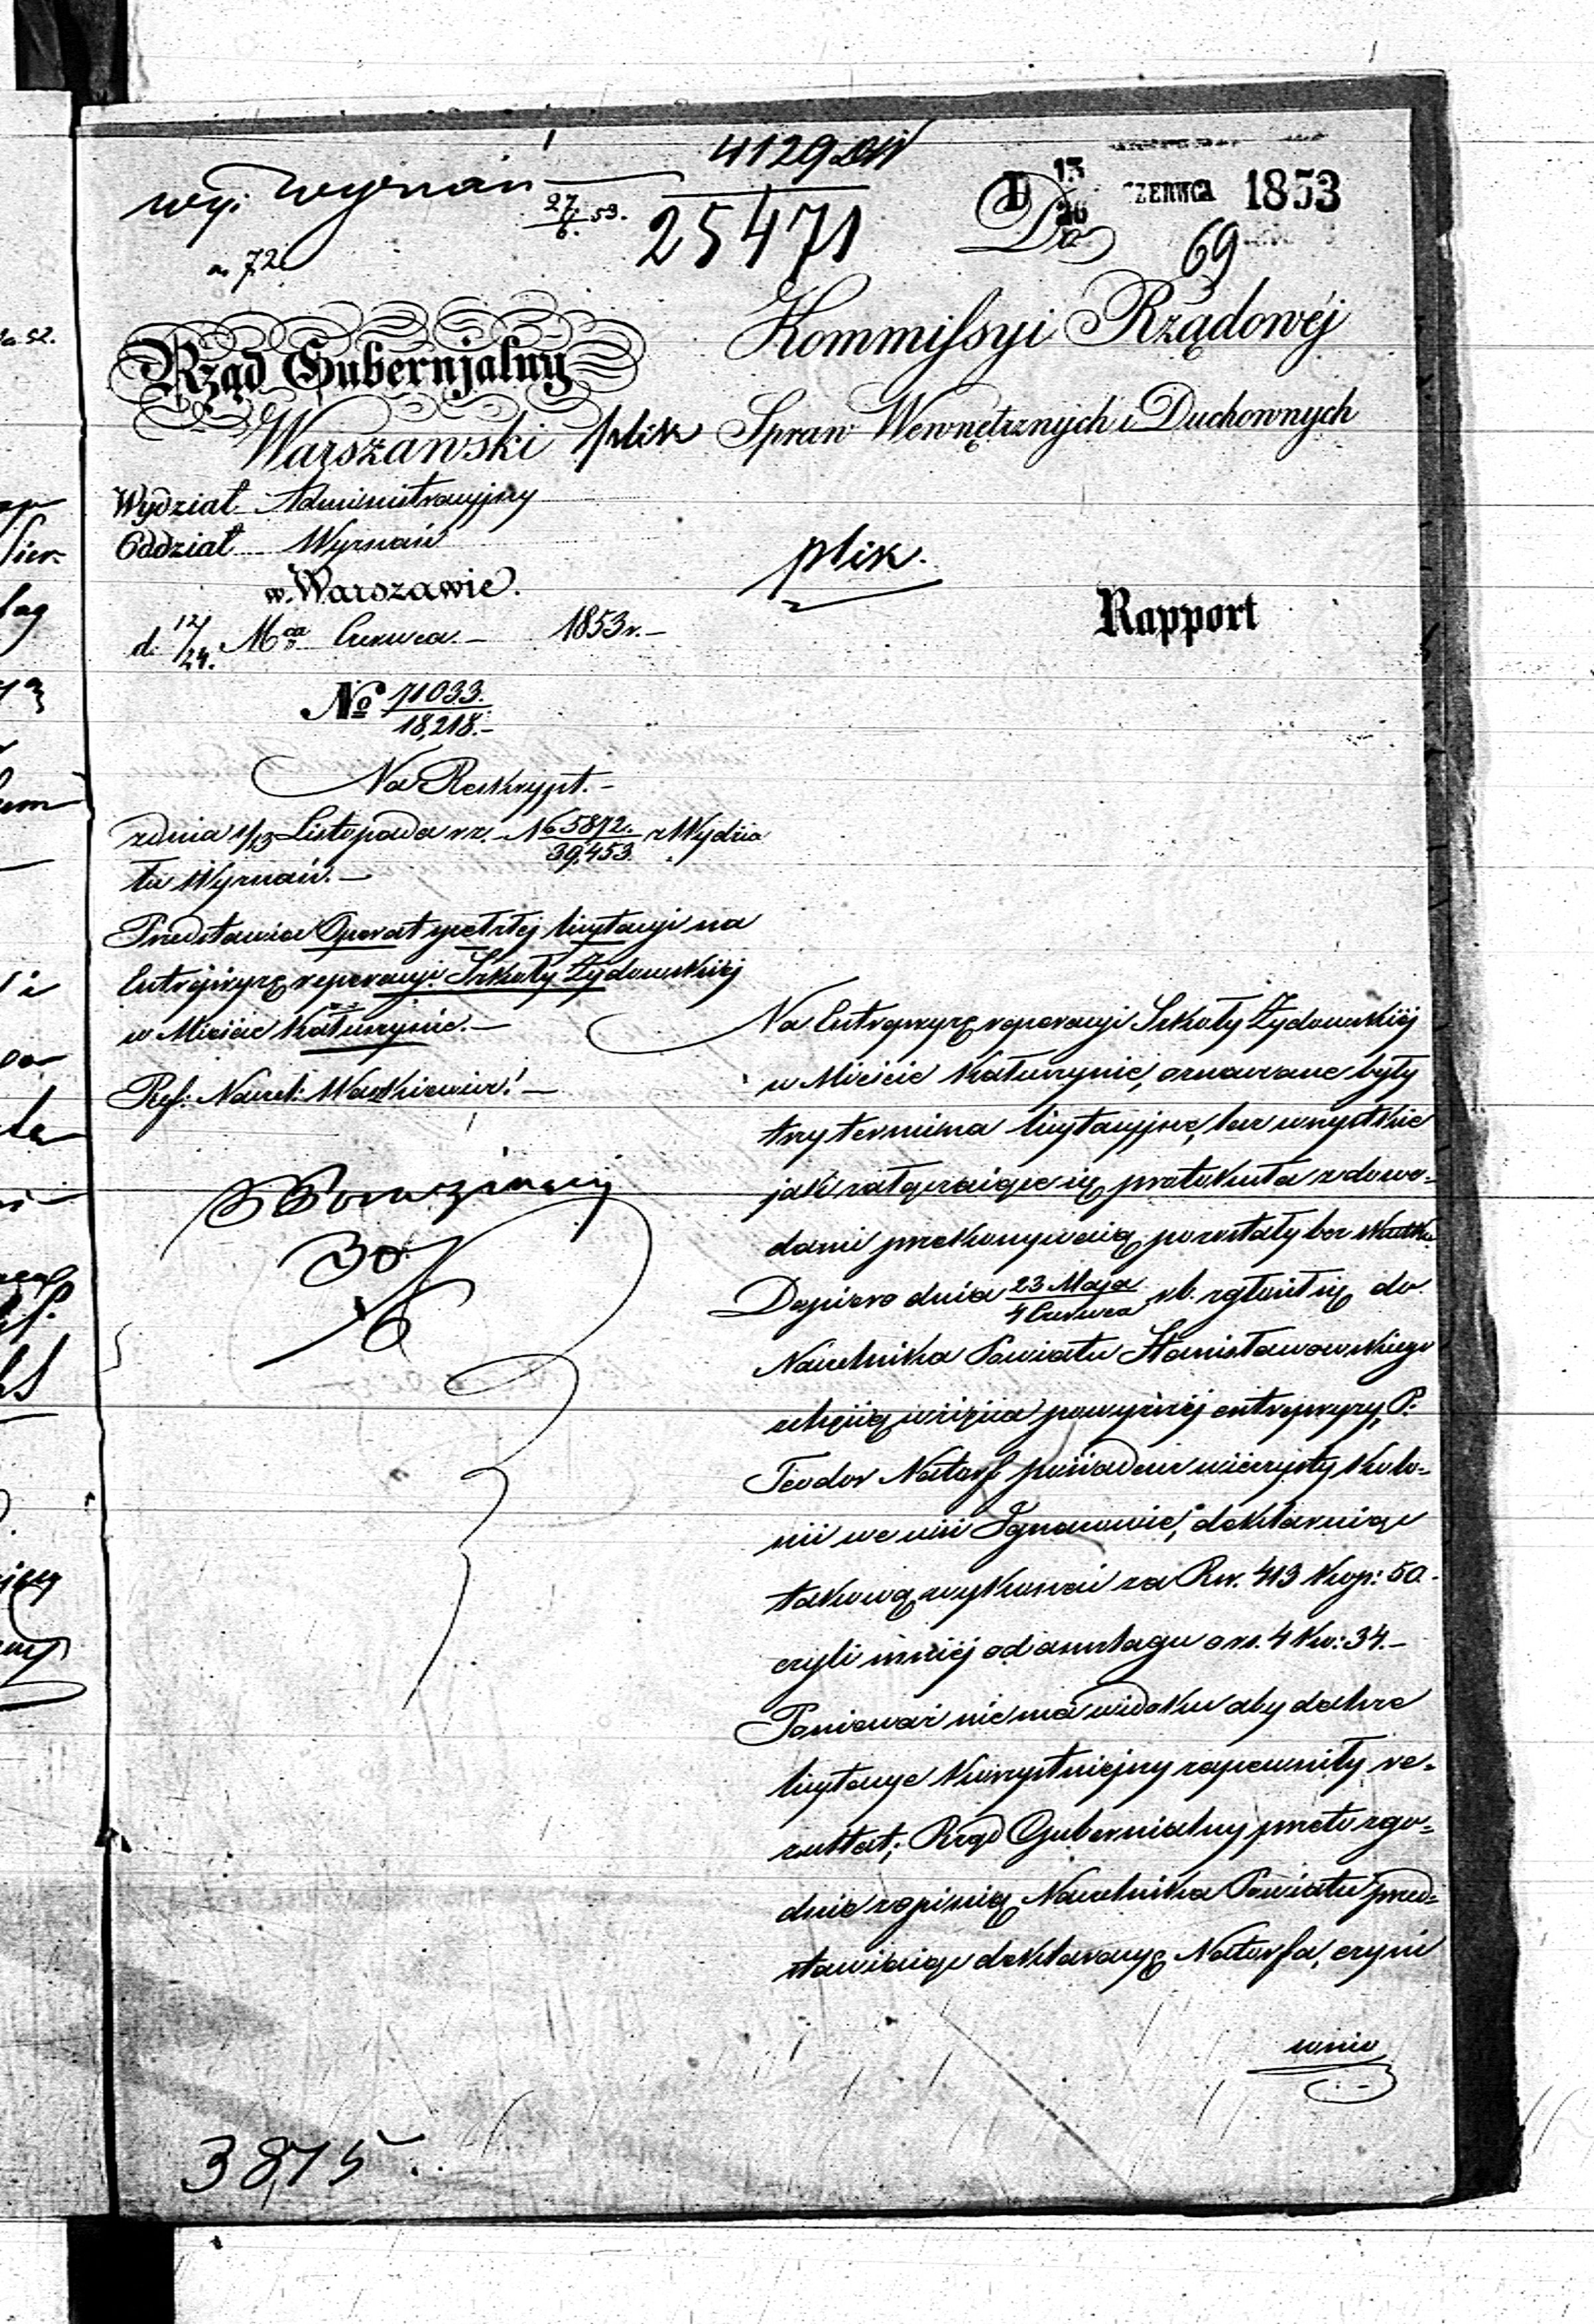 wyz. Wyznań
27/6 53.
4129
25471
D 13 CZERWCA 1853
Do
69
72
Kommissyi Rządowéj
Rząd Gubernjalny
Warszawski plik Spraw Wewnętrznych i Duchownych
Wydział Administracyjny
Oddział Wyznań
w Warszawie.
plik.
Rapport
d. 12/24. Mca Czerwca 1853 r.
No 71033./18,218.
Na Reskrypt.
z dnia 1/13 Listopada r.z. No 5872./39,453. z Wydzia
łu Wyznań.
Przedstawia Operat spełzłej licytacyi na
Entrepryzę reperacyi Szkoły Żydowskiéj
w Mieście Kałuszynie.
Ref: Naczel: Waszkiewicz.
30/6
Na Entrepryzę reperacyi Szkoły Żydowskiéj
w Mieście Kałuszynie, oznaczone były
trzy termina licytacyjne, lecz wszystkie
jak załączające się protokuła z dowo=
dami przekonywają pozostały bez skutku.
Dopiero dnia 23 Maja/4 Czerwca r.b. zgłosił się do
Naczelnika Powiatu Stanisławowskiego
z chęcią wzięcia powyższéj entrepryzy, P.
Teodor Natorf posiadacz wieczysty kolo=
nii we wsi Ignacowie, deklarując
takową wykonać za Rsr. 413 kop: 50.
czyli mniéj od anszlagu o rs. 4 ko: 34.
Ponieważ nie ma widoku aby dalsze
licytacye korzystniejszy zapewniły re=
zultat; Rząd Gubernialny przeto zgo=
dnie z opinią Naczelnika Powiatu przed=
stawiając deklaracyę Natorfa, czyni
wnio
3875